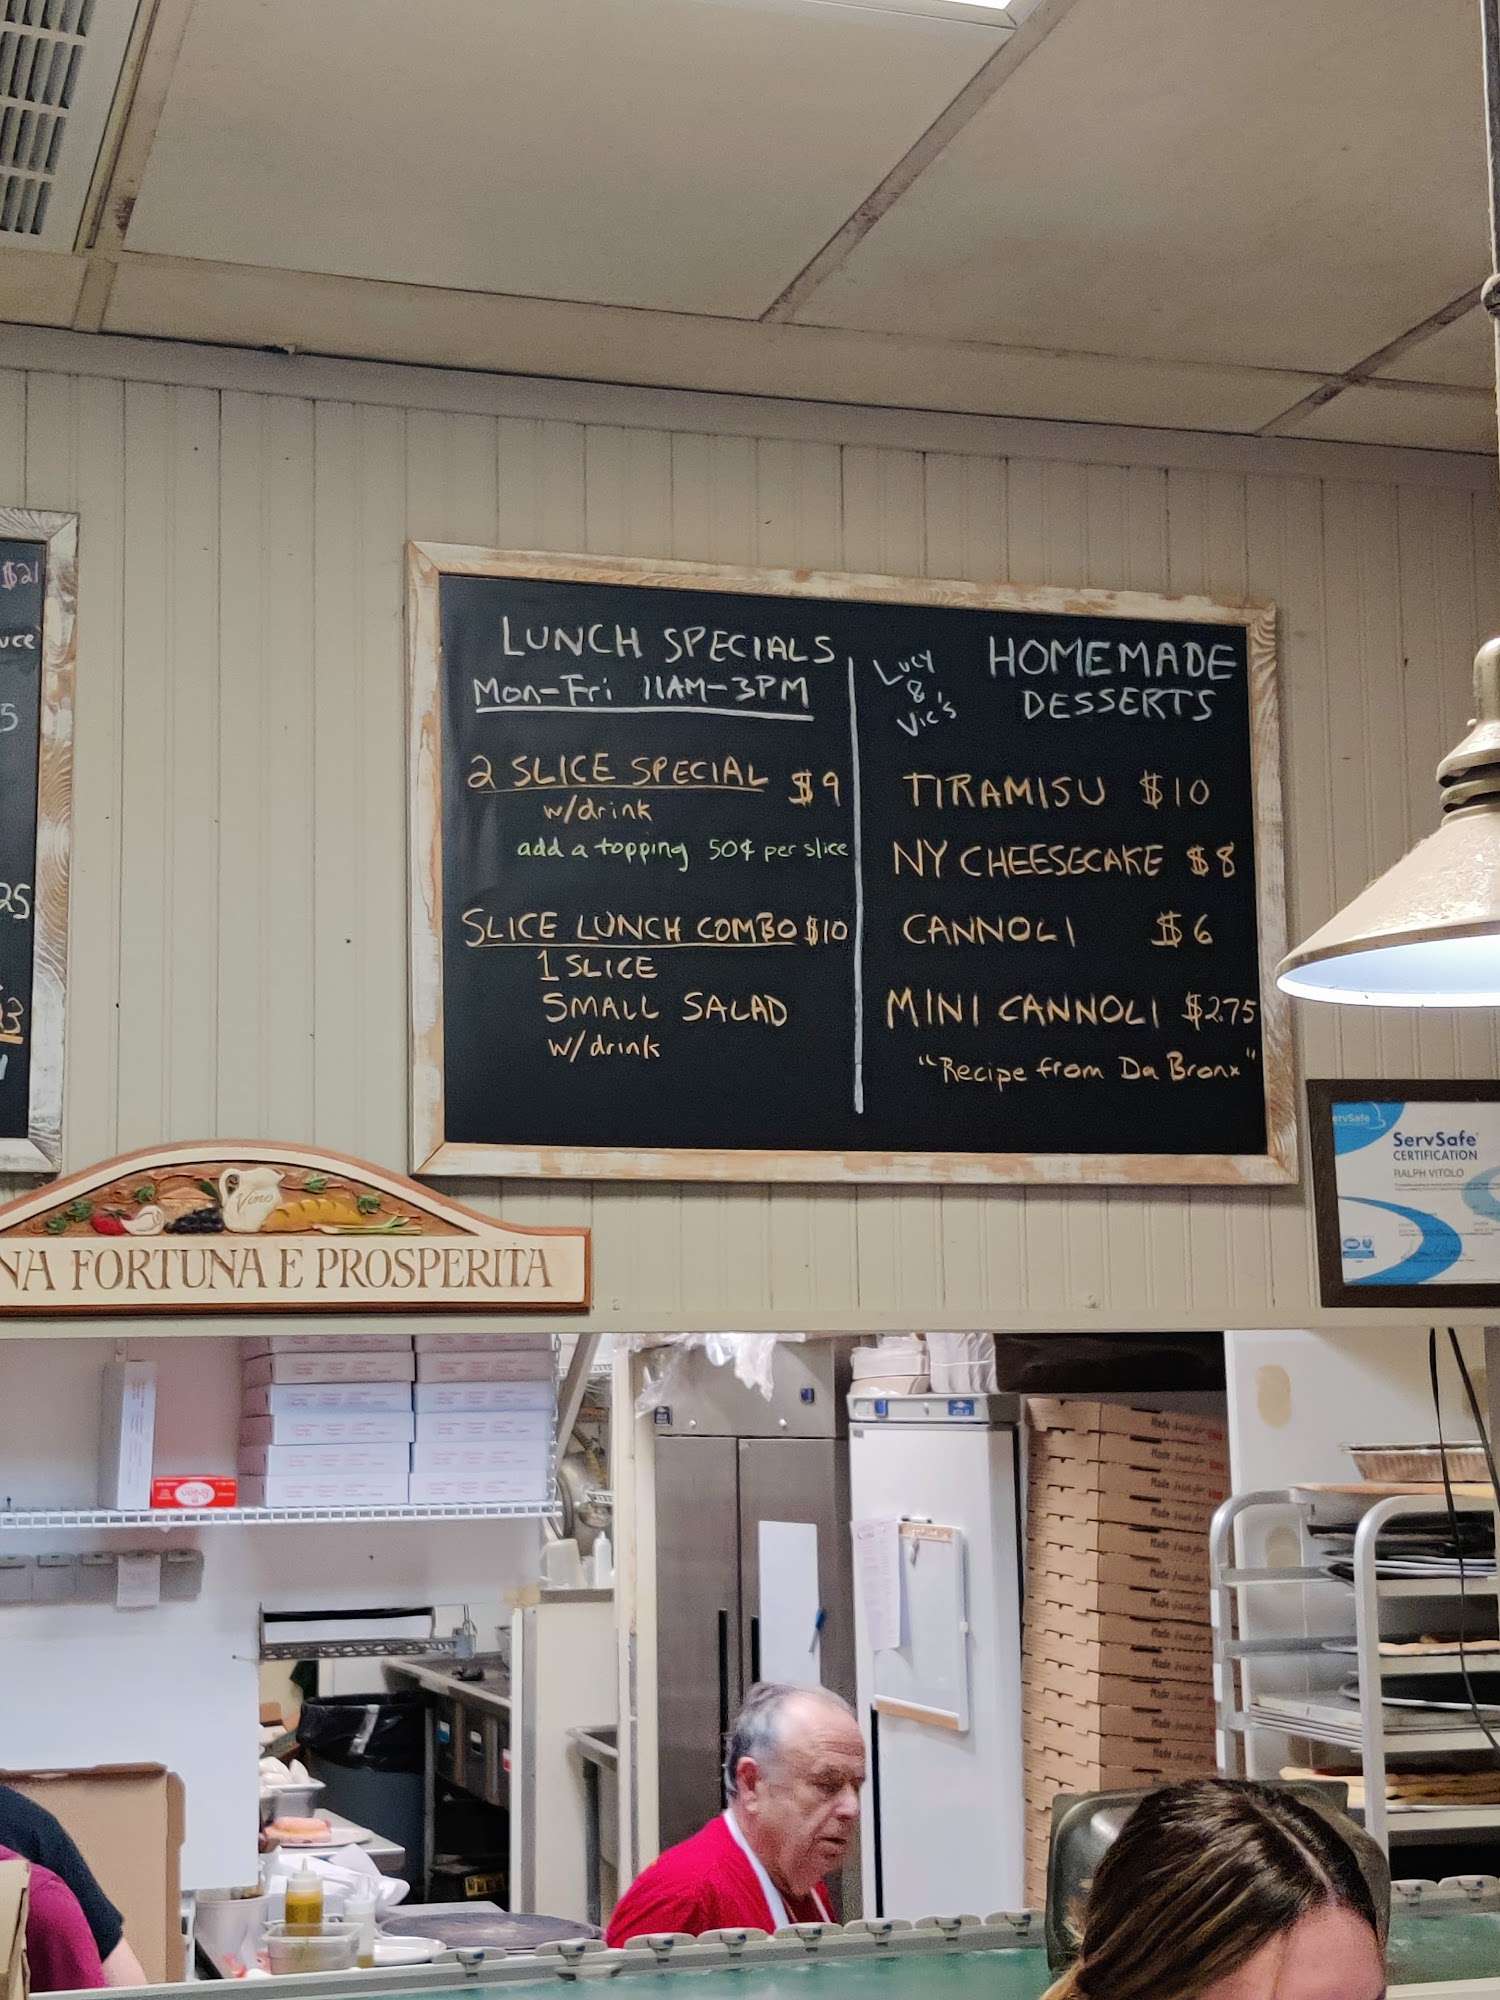 $21
5
25
LUNCH SPECIALS
Mon-Fri 11AM-3PM
2 SLICE SPECIAL $9
w/drink
add a topping 50¢ per slice
SLICE LUNCH COMBO $10
1 SLICE
SMALL SALAD
w/drink
Lucy
&
Vic's
HOMEMADE
DESSERTS
TIRAMISU $10
NY CHEESECAKE $8
CANNOLI $6
MINI CANNOLI $2.75
"Recipe from Da Bronx"
ServSafe
ServSafe
CERTIFICATION
RALPH VITOLO
Vino
NA FORTUNA E PROSPERITA
Made Just for